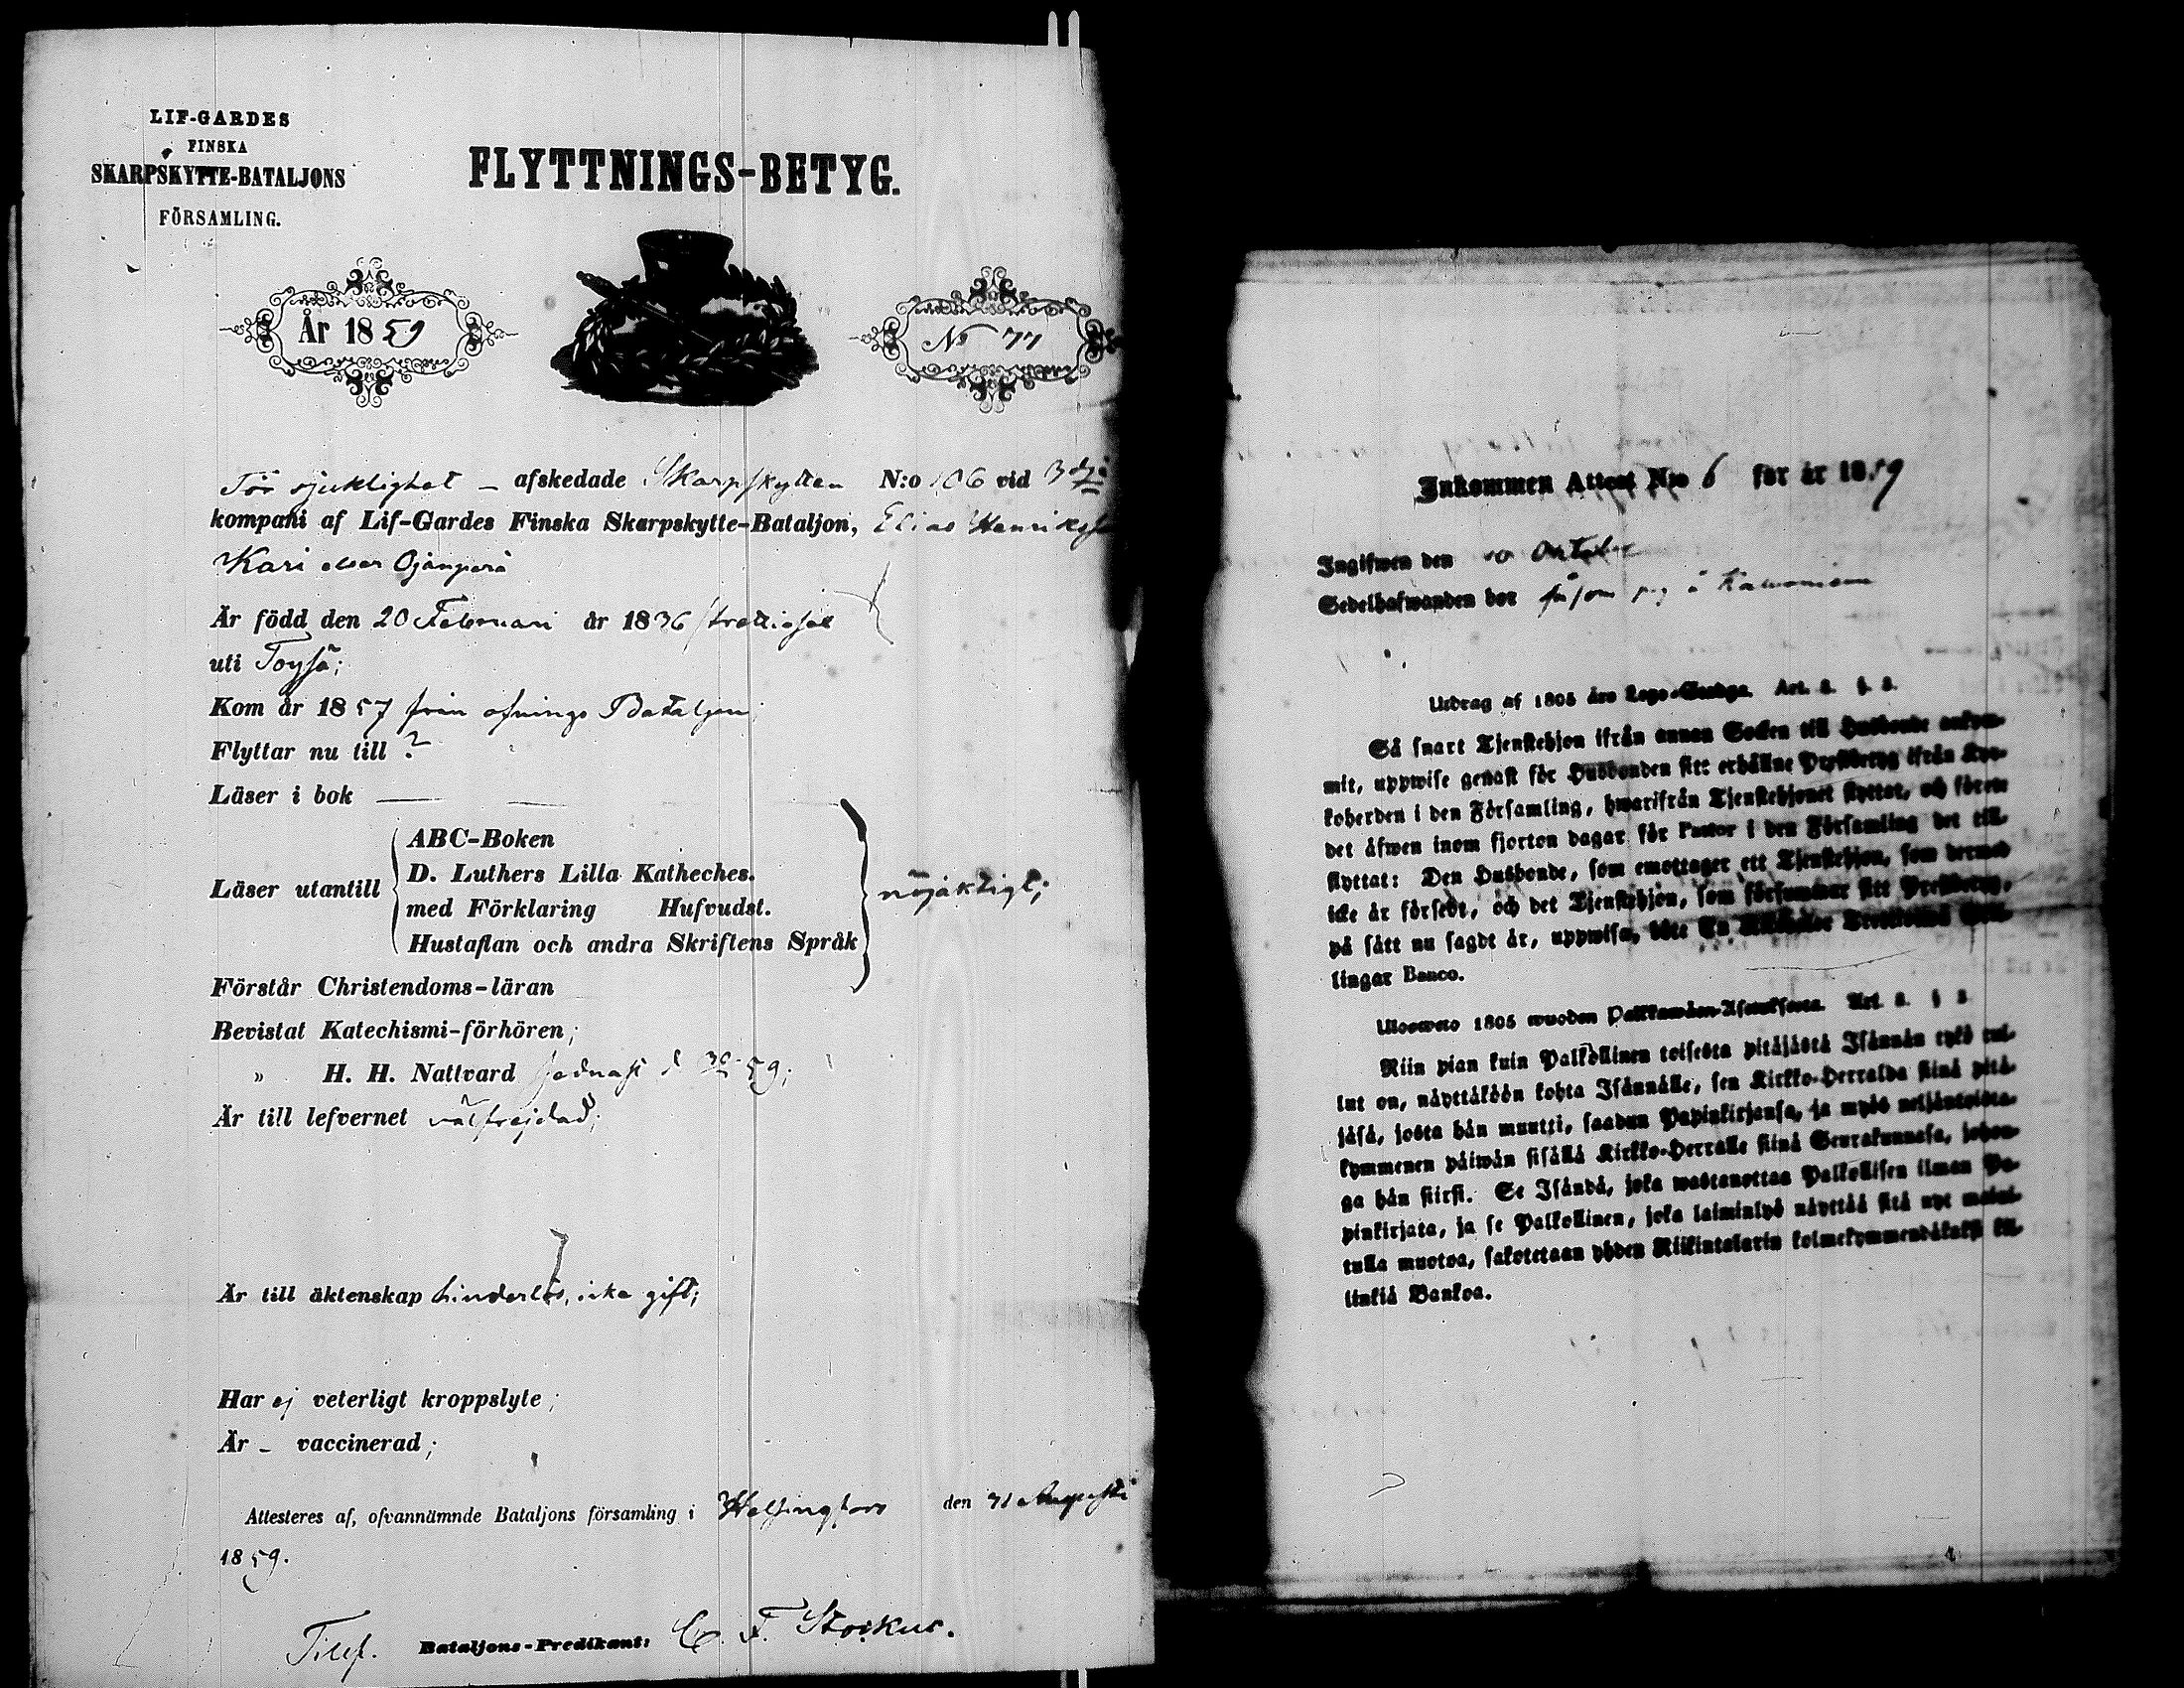 LIF-GARDES
FINSKA
SKARPSKYTTE-BATALJONS
FÖRSAMLING.
FLYTTNINGS-BETYG.
År 1859
No 77
För sjuklighet – afskedade Skarpskytten N:o 106 vid 3dje
kompani af Lif-Gardes Finska Skarpskytte-Bataljon, Elias Henriksson
Kari eller Ojanperä
Är född den 20 Februari år 1836
uti Toysä;
Kom år 1857 från Bataljon;
Flyttar nu till ?
Läser i bok —
Läser utantill
ABC-Boken
D. Luthers Lilla Katheches.
med Förklaring Hufvudst.
Hustaflan och andra Skriftens Språk
nöjaktigt;
Förstår Christendoms-läran
Bevistat Katechismi-förhören;
" H. H. Nattvard sednast d 59;
Är till lefvernet välfrejdad;
Är till äktenskap hinderlös, icke gift;
Har ej veterligt kroppslyte;
Är – vaccinerad;
Attesteres af, ofvannämnde Bataljons församling i Helsingfors den 31 Augusti
1859.
Bataljons-Predikant: F. Stockus.
Inkommen Attest N:o 6 för år 1859
Ingifwen den 10 October
Sedelhafwanden bor såsom på
Utdrag af 1805 års Lego-Stadga. Art. 2. §. 3.
Så snart Tjenstehjon ifrån annan Socken till Husbonde ankom-
mit, uppwise genast för Husbonden sitt erhållne Prestbetyg ifrån Kyr-
koherden i den Församling, hwarifrån Tjenstehjonet flyttat, och förete
det äfwen inom fjorton dagar för Pastor i den Församling det till-
flyttat: Den Husbonde, som emottager ett Tjenstehjon, som dermed
icke är försedt, och det Tjenstehjon, som försummar sitt Prestbetyg,
på sätt nu sagdt är, uppwisa, böte En Riksdaler Skil-
lingar Banco.
Ulosweto 1805 wuoden Palkkawäen-Asetuksesta. Art. 2. § 3
Niin pian kuin Palkollinen toisesta pitäjästä Isännän tykö tul-
lut on, näyttäköön kohta Isännälle, sen Kirkko-Herralda siinä pitä-
jäsä, josta hän muutti, saadun Papinkirjansa, ja myös neljäntoista-
kymmenen päiwän sisällä Kirkko-Herralle siinä Seurakunnasa, johon-
ga hän siirsi. Se Isändä, joka wastanottaa Palkollisen ilman Pa-
pinkirjata, ja se Palkollinen, joka laiminlyö näyttää sitä nyt maini-
tulla muotoa, sakotetaan yhden Riikintalarin kolmekymmendäkaksi kil-
linkiä Bankoa.